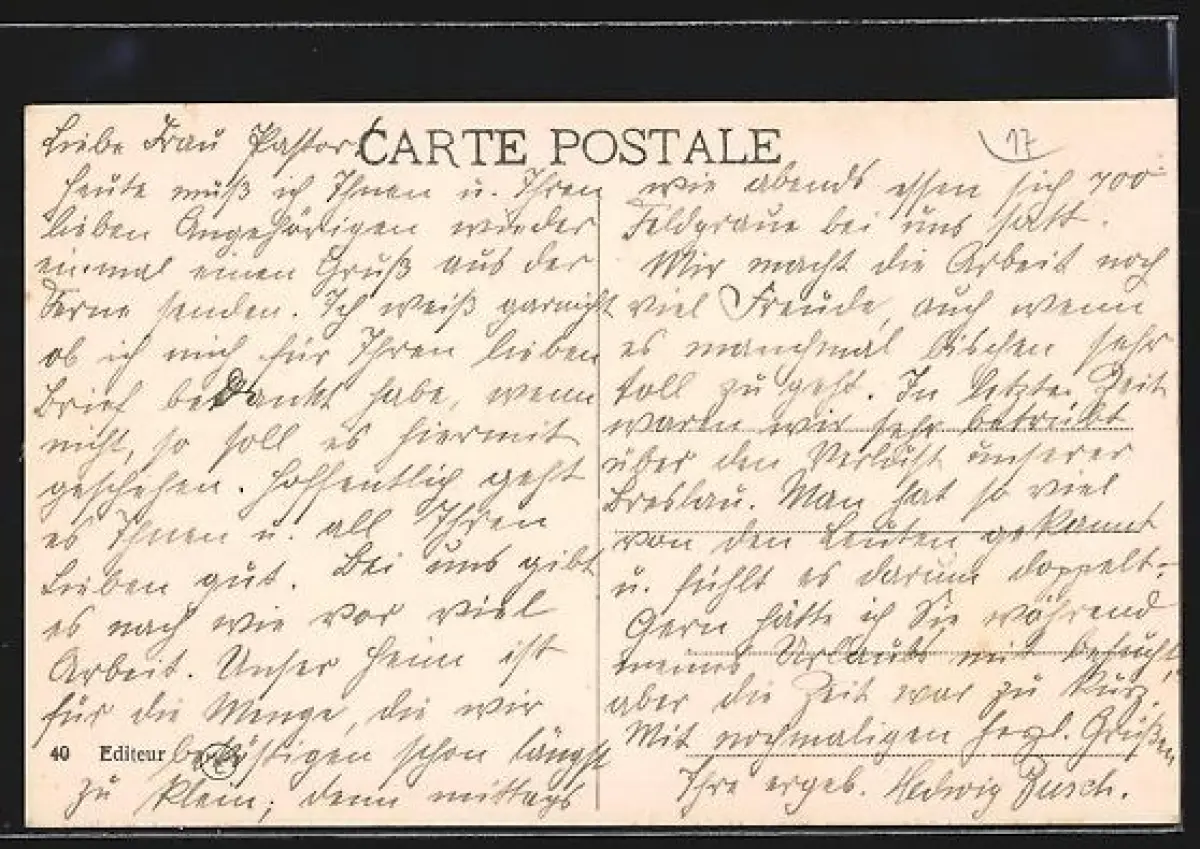 CARTE POSTALE
17
Liebe Frau Pastor!
Heute muß ich Ihnen u. Ihren
lieben Angehörigen wieder
einmal einen Gruß aus der
Ferne senden. Ich weiß garnicht
ob ich mich für Ihren lieben
Brief bedankt habe, wenn
nicht, so soll es hiermit
geschehen. Hoffentlich geht
es Ihnen u. all Ihren
Lieben gut. Bei uns gibt
es nach wie vor viel
Arbeit. Unser Heim ist
für die Menge, die wir
beköstigen schon längst
zu klein; denn mittags
40 Editeur
wie abends essen sich 700
Feldgraue bei uns satt.
Mir macht die Arbeit noch
viel Freude, auch wenn
es manchmal bischen sehr
toll zu geht. In letzter Zeit
waren wir sehr betrübt
über den Verlust unserer
Breslau. Man hat so viel
von den Leuten gekannt
u. fühlt es darum doppelt.
Gern hätte ich Sie während
meines Urlaubs mit besucht,
aber die Zeit war zu kurz.
Mit nochmaligen herzl. Grüßen
Ihre ergeb. Hedwig Busch.